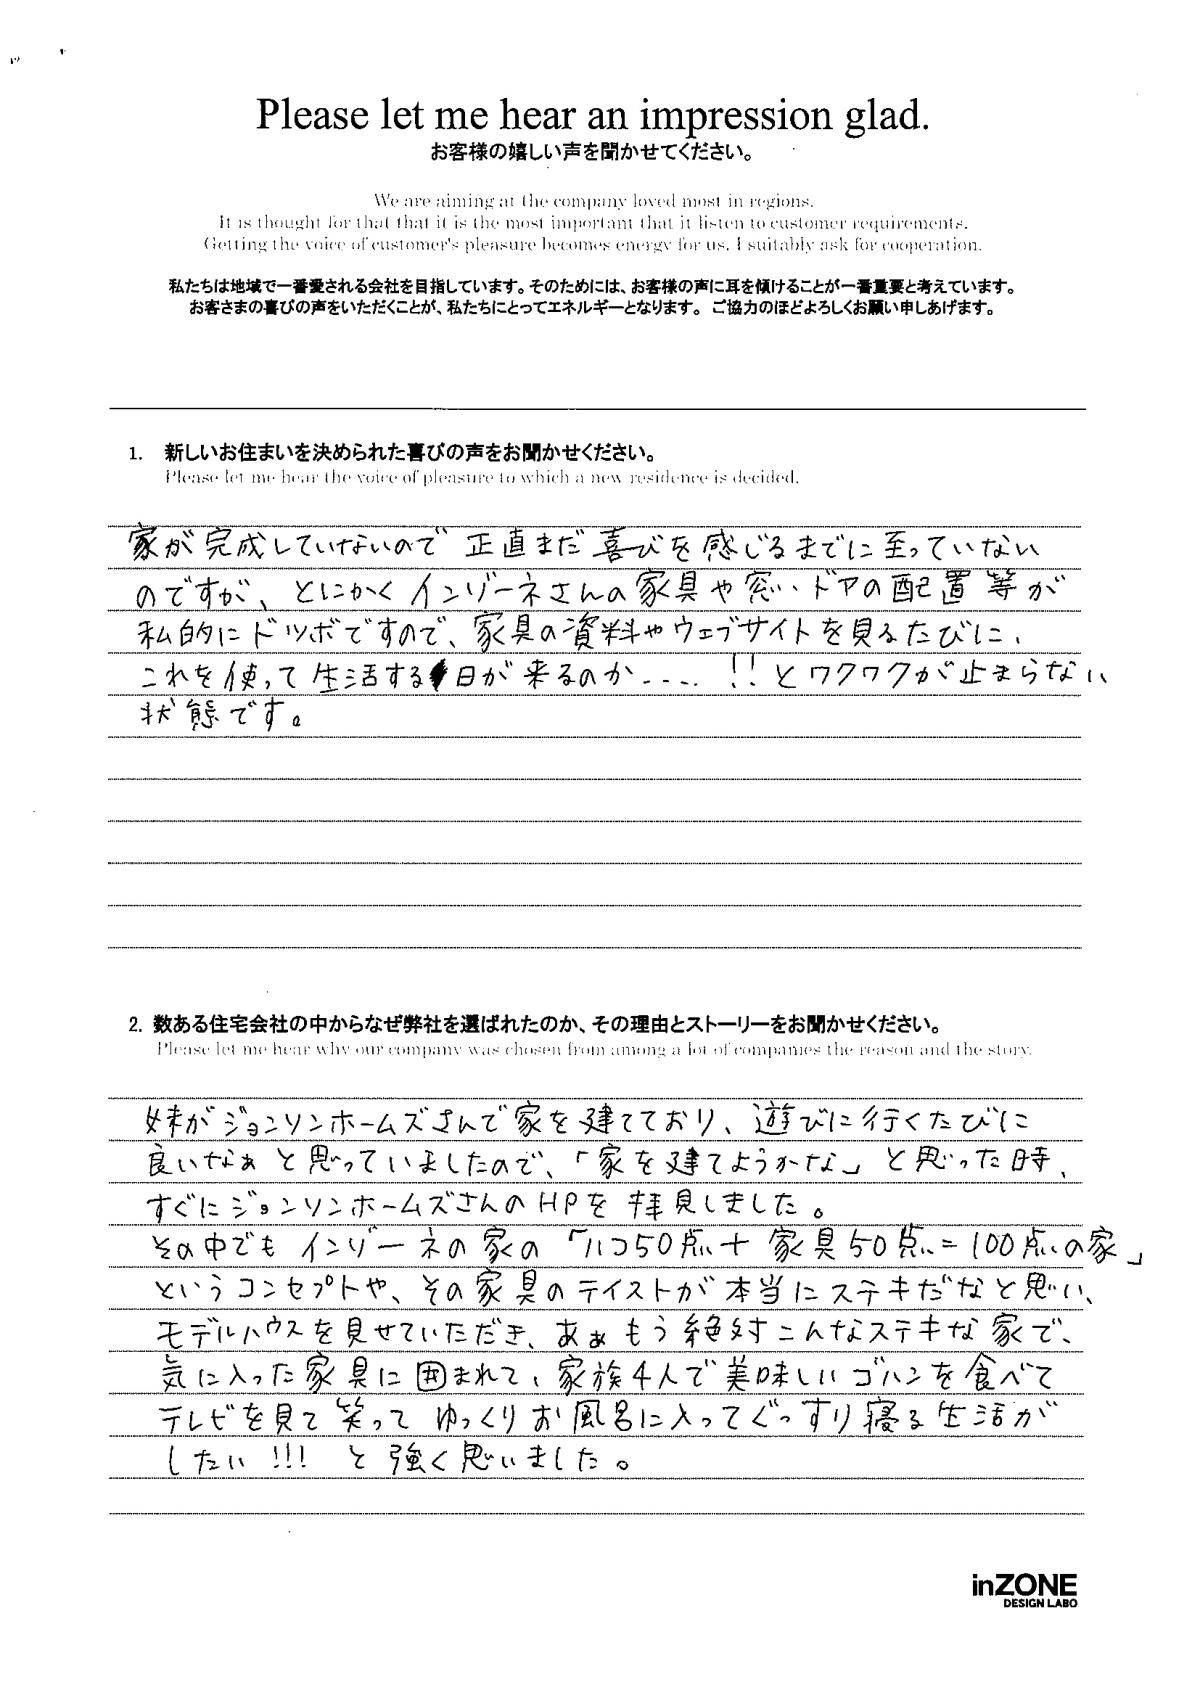 Please let me hear an impression glad.
お客様の嬉しい声を聞かせてください。
We are aiming at the company loved most in regions.
It is thought for that that it is the most important that it listen to customer requirements.
Getting the voice of customer's pleasure becomes energy for us. I suitably ask for cooperation.
私たちは地域で一番愛される会社を目指しています。そのためには、お客様の声に耳を傾けることが一番重要と考えています。
お客さまの喜びの声をいただくことが、私たちにとってエネルギーとなります。 ご協力のほどよろしくお願い申しあげます。
1. 新しいお住まいを決められた喜びの声をお聞かせください。
Please let me hear the voice of pleasure to which a new residence is decided.
家が完成していないので 正直まだ 喜びを感じるまでに至っていない
のですが、とにかくインゾーネさんの家具や窓・ドアの配置等が
私的にドツボですので、家具の資料やウェブサイトを見るたびに、
これを使って生活する日が来るのか....!!とワクワクが止まらない
状態です。
2. 数ある住宅会社の中からなぜ弊社を選ばれたのか、その理由とストーリーをお聞かせください。
Please let me hear why our company was chosen from among a lot of companies the reason and the story.
妹がジョンソンホームズさんで家を建てており、遊びに行くたびに
良いなぁと思っていましたので、「家を建てようかな」と思った時、
すぐにジョンソンホームズさんのHPを拝見しました。
その中でもインゾーネの家の「ハコ50点+家具50点=100点の家」
というコンセプトや、その家具のテイストが本当にステキだなと思い、
モデルハウスを見せていただき、あぁもう絶対こんなステキな家で、
気に入った家具に囲まれて、家族4人で美味しいゴハンを食べて
テレビを見て笑ってゆっくりお風呂に入ってぐっすり寝る生活が
したい!!! と強く思いました。
inZONE
DESIGN LABO